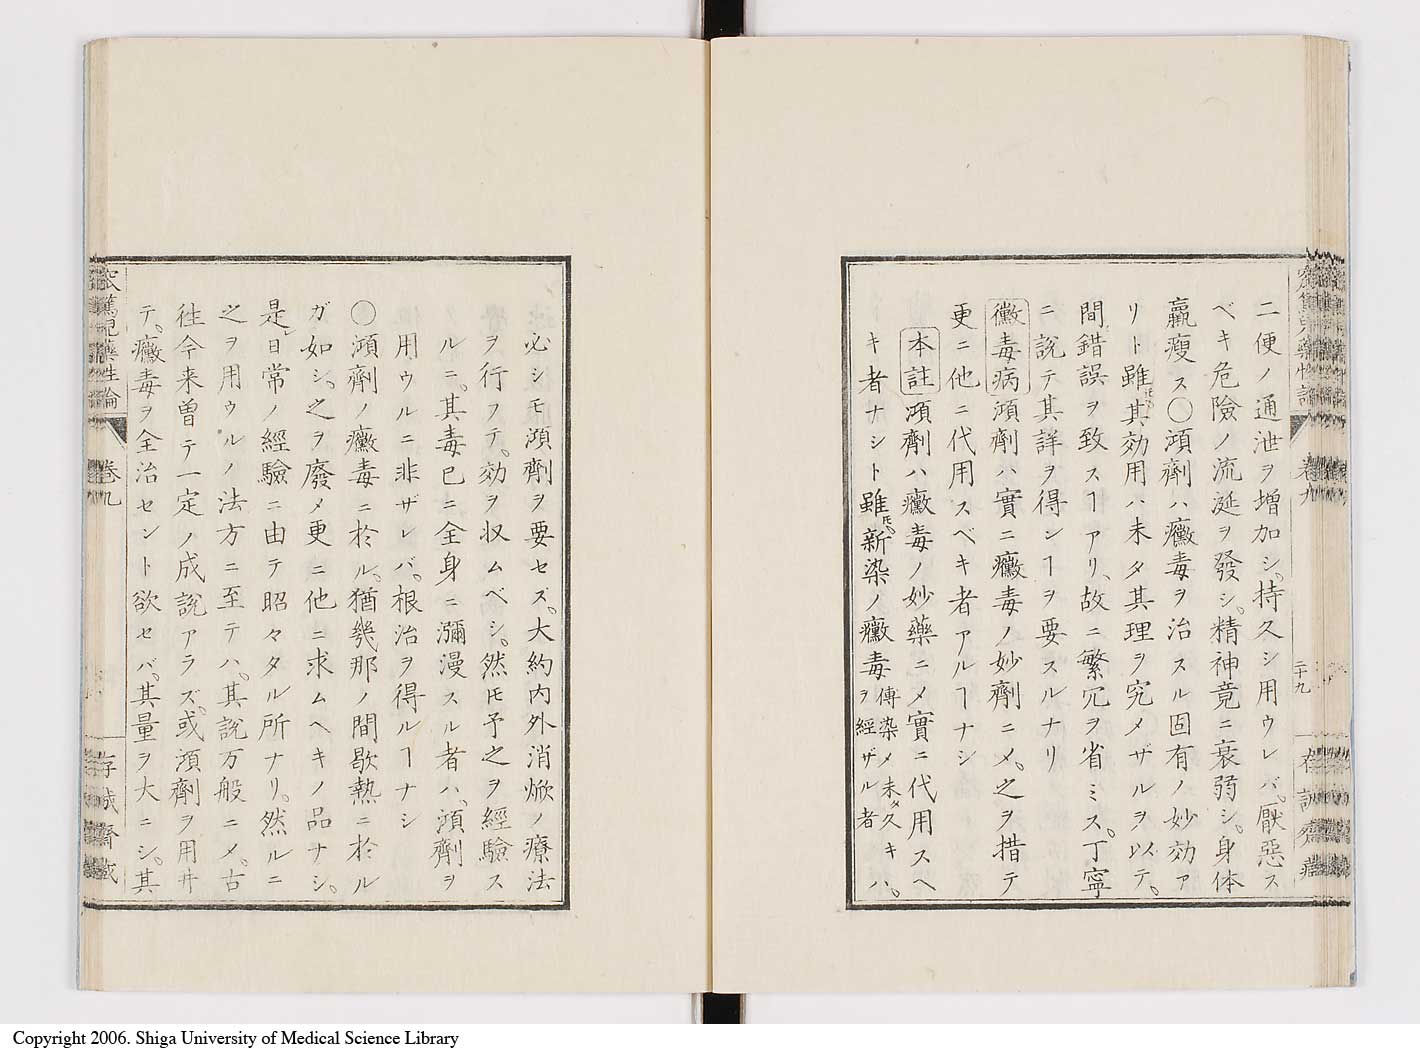 二便ノ通泄ヲ増加シ、持久シ用ウレバ、厭惡ス
ベキ危險ノ流涎ヲ發シ、精神竟ニ衰弱シ、身体
羸瘦ス〇澒劑ハ黴毒ヲ治スル固有ノ妙効ア
リト雖𪜈、其効用ハ未タ其理ヲ究メザルヲ以テ、
間錯誤ヲ致スヿアリ、故ニ繁冗ヲ省ミス、丁寧
ニ説テ其詳ヲ得ンヿヲ要スルナリ
黴毒病 澒劑ハ實ニ黴毒ノ妙劑ニメ、之ヲ措テ
更ニ他ニ代用スベキ者アルヿナシ
本註 澒劑ハ黴毒ノ妙藥ニメ實ニ代用スヘ
キ者ナシト雖𪜈、新染ノ黴毒傳染メ未タ久キ
ヲ經ザル者ハ、
卷九
二十九
必シモ澒劑ヲ要セズ、大約内外消焮ノ療法
ヲ行フテ、効ヲ収ムベシ、然𪜈予之ヲ經驗ス
ルニ、其毒已ニ全身ニ瀰漫スル者ハ、澒劑ヲ
用ウルニ非ザレバ、根治ヲ得ルヿナシ
〇澒劑ノ黴毒ニ於ル、猶幾那ノ間歇熱ニ於ル
ガ如シ、之ヲ廢メ更ニ他ニ求ムヘキノ品ナシ、
是レ日常ノ經驗ニ由テ昭々タル所ナリ、然ルニ
之ヲ用ウルノ法方ニ至テハ、其説万般ニメ、古
往今来曽テ一定ノ成説アラズ、或澒劑ヲ用井
テ、黴毒ヲ全治セント欲セバ、其量ヲ大ニシ、其
藥性論
卷九
Copyright 2006. Shiga University of Medical Science Library